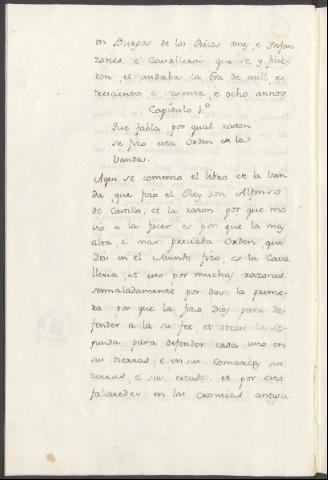 en Burgos de los Ricos omes, e Ynfan
zones, e Cavalleros que se y ficie
ron, et andaba la Era de mill, e
trecientos, e sesenta, e ocho annos.
Capítulo 1.º
Que fabla por qual razon
se fizo esta Orden de la
Vanda.
Aqui se comenzo el libro et la Van
da que fizo el Rey don Alfonso
de Castilla, et la razon por que mo
vió a la facer, es por que la mas
alta, e mas preciada Orden, que
Dios en el Mundo fizo, es la Cava
lleria, et esto por muchas razones.
sennaladamente por dos, la prime
ra por que la fizo Dios para de
fender a la su fee, et otrosi la se
gunda, para defender cada uno en
sus tierras, é en sus Comarcas sus
tierras, é sus estados, et por esto
fallaredes en las Cronicas antigu